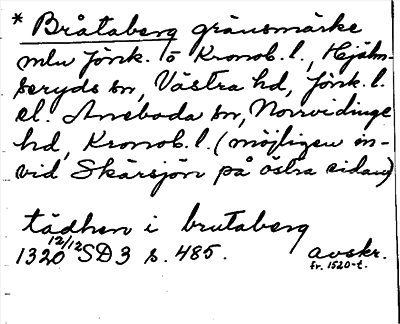 * Bråtaberg gränsmärke
mlu Jönk. o Kronob. l., Hjälm-
seryds sn, Västra hd, Jönk. l.
el. Aneboda sn, Norrvidinge
hd, Kronob. l. (möjligen in-
vid Skärsjön på östra sidan)
tädhen i brutaberg
1320 12/12 SD 3 s. 485. avskr.
fr. 1520-t.